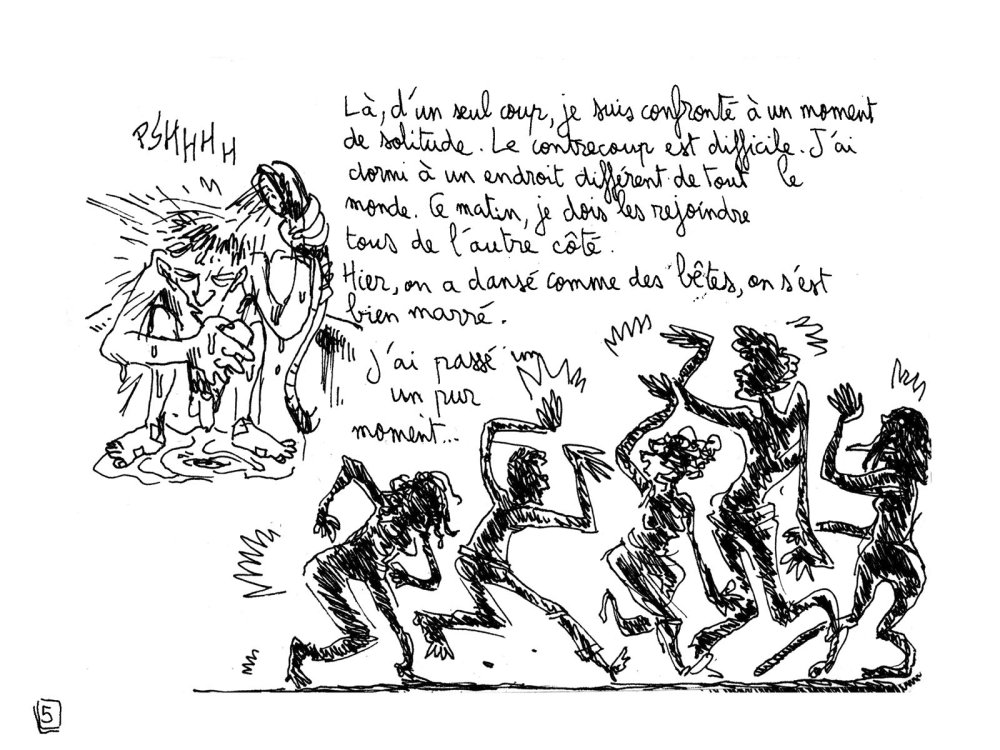 PSHHHH
Là, d'un seul coup, je suis confronté à un moment
de solitude. Le contrecoup est difficile. J'ai
dormi à un endroit différent de tout le
monde. Ce matin, je dois les rejoindre
tous de l'autre côté.
Hier, on a dansé comme des bêtes, on s'est
bien marré.
J'ai passé
un pur
moment...
5